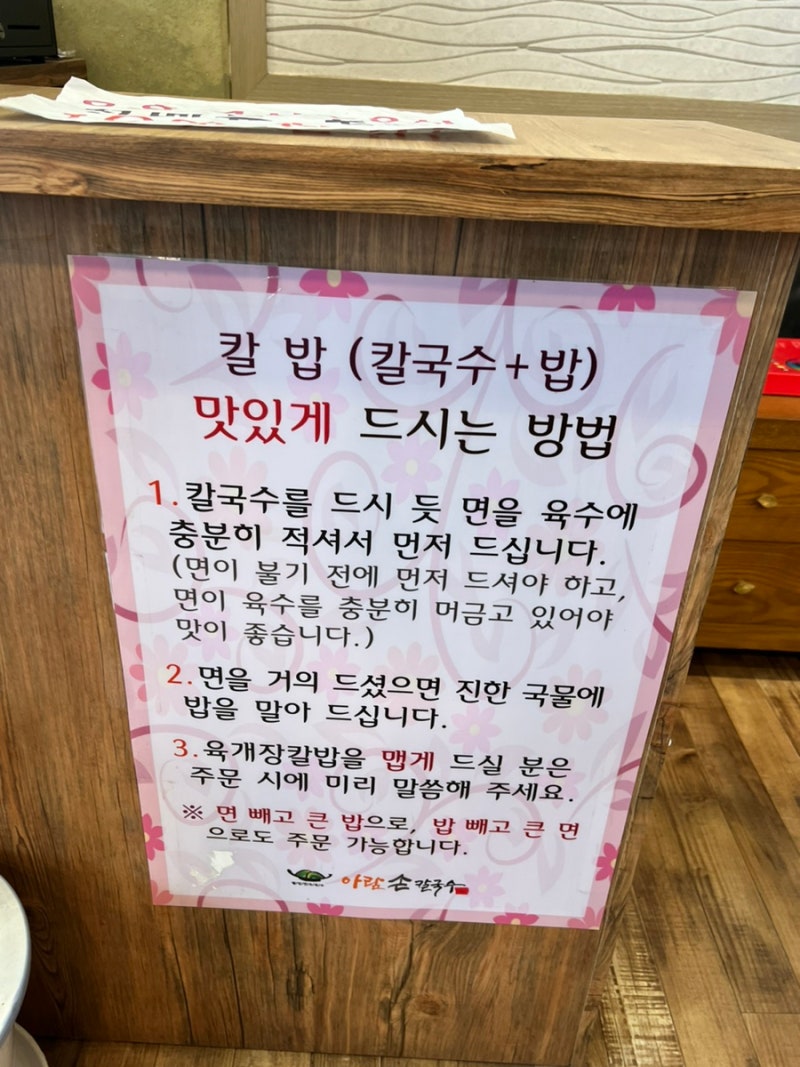 칼 밥 (칼국수+밥)
맛있게 드시는 방법
1. 칼국수를 드시 듯 면을 육수에
충분히 적셔서 먼저 드십니다.
(면이 불기 전에 먼저 드셔야 하고,
면이 육수를 충분히 머금고 있어야
맛이 좋습니다.)
2. 면을 거의 드셨으면 진한 국물에
밥을 말아 드십니다.
3. 육개장칼밥을 맵게 드실 분은
주문 시에 미리 말씀해 주세요.
※ 면 빼고 큰 밥으로, 밥 빼고 큰 면
으로도 주문 가능합니다.
아람 손 칼국수